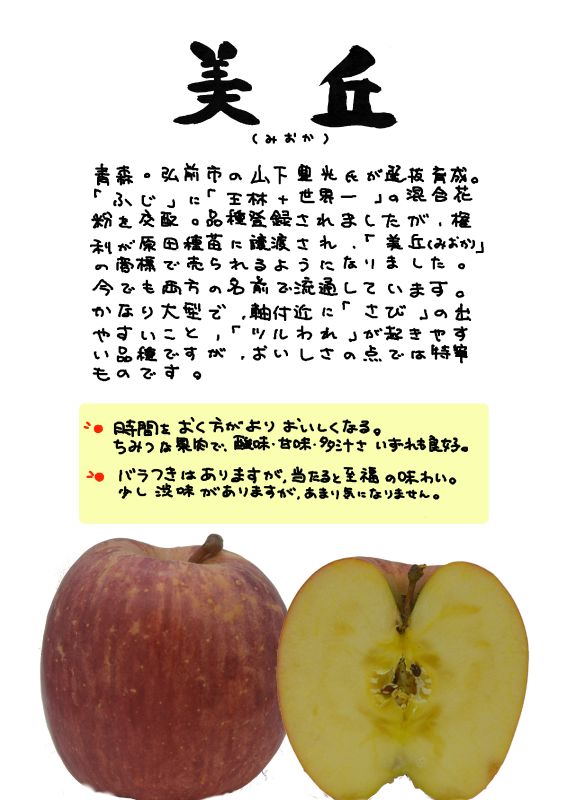 美丘
(みおか)
青森。弘前市の山下里光氏が選抜育成。
「ふじ」に「王林+世界一」の混合花
粉を交配。品種登録されましたが、権
利が原田種苗に譲渡され、「美丘(みおか)」
の商標で売られるようになりました。
今でも両方の名前で流通しています。
かなり大型で、軸付近に「さび」の出
やすいこと、「ツルわれ」が起きやす
い品種ですが、おいしさの点では特筆
ものです。
時間をおく方がよりおいしくなる。
ちみつな果肉で、酸味・甘味・多汁さいずれも良好。
バラつきはありますが、当たると至福の味わい。
少し渋味がありますが、あまり気になりません。